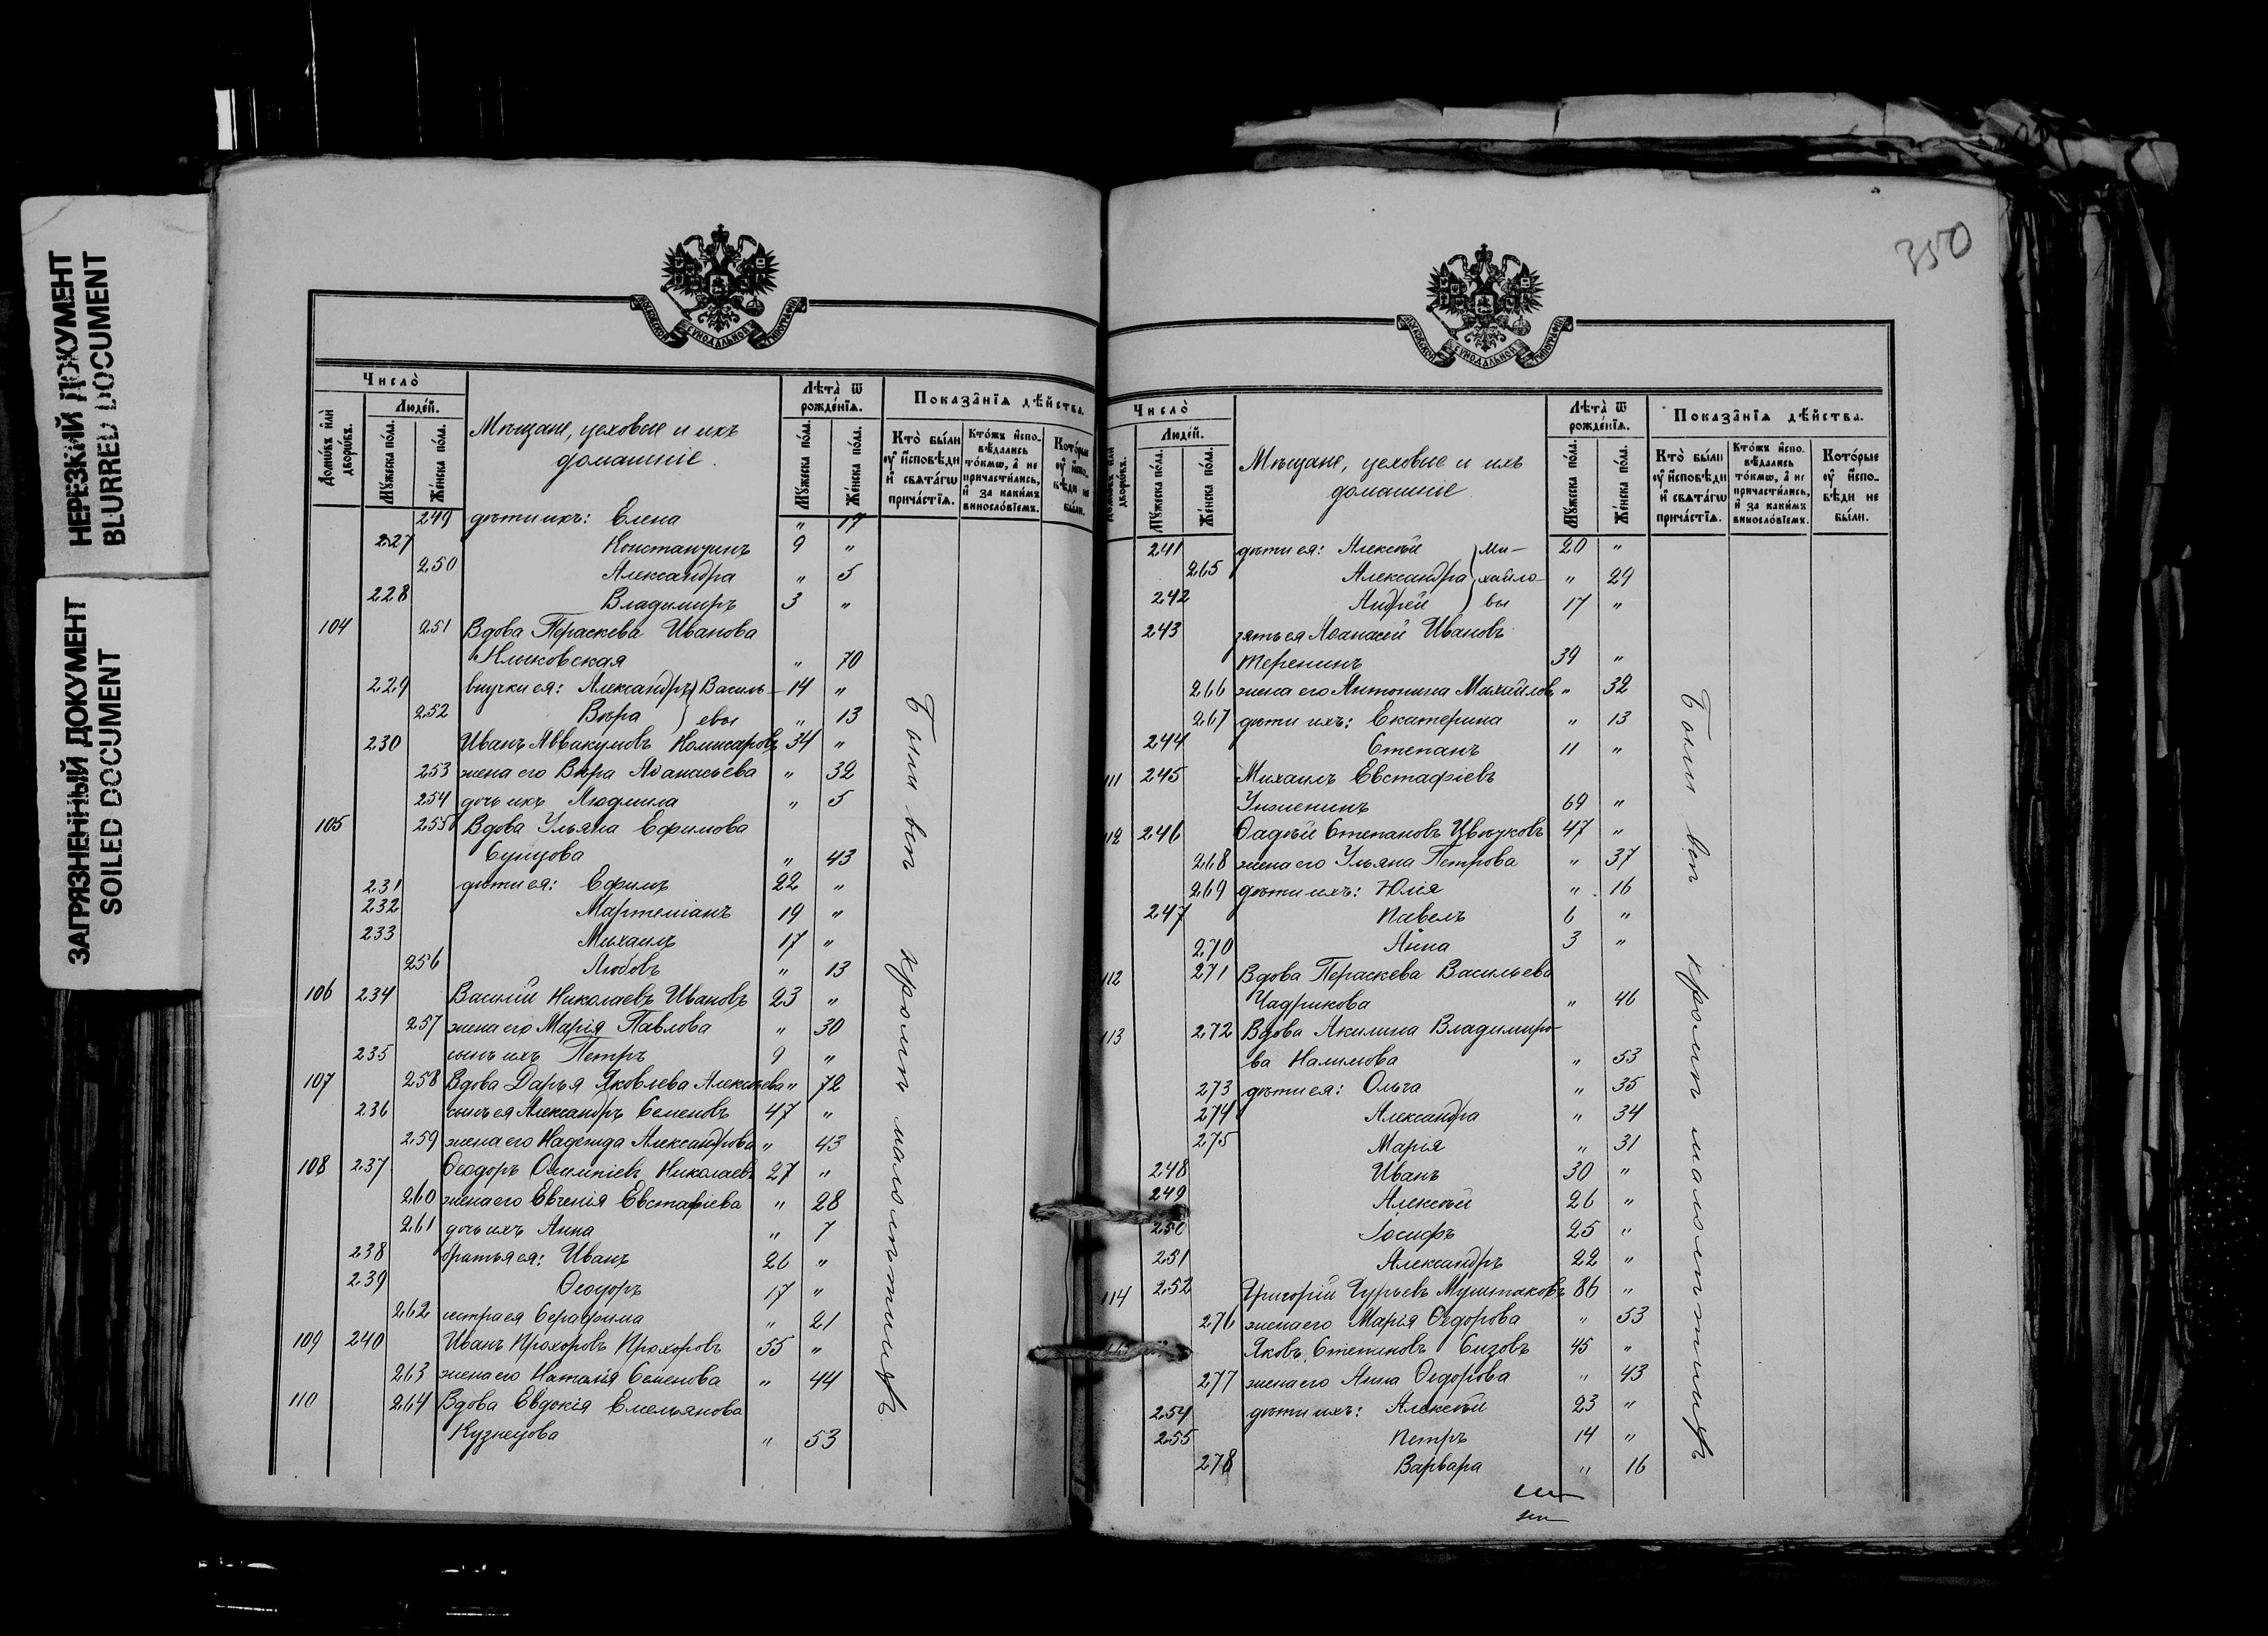 НЕРЕЗКИЙ ДОКУМЕНТ
BLURRED DOCUMENT
ЗАГРЯЗНЕННЫЙ ДОКУМЕНТ
SOILED DOCUMENT
МОСКОВСКОЙ СУНОДАЛЬНОЙ ТИПОГРАФІИ
Число̀
Домѡ́въ и҆лѝ дворѡ́въ.
Люде́й.
Мꙋ́жеска по́ла.
Же́нска по́ла.
Мѣщане, цеховые и ихъ
домашніе.
Лѣ́та ѿ рожде́нїѧ.
Мꙋ́жеска по́ла.
Же́нска по́ла.
Показа̑нїѧ дѣ́йства.
Кто̀ бы́ли оу҆ и҆сповѣди и҆ свѧта́гѡ прича́стїѧ.
Кто́жъ и҆спо-вѣдались то́кмѡ, а҆ не причасти́лись, и҆ за каки́мъ виносло́вїемъ.
Кото́рые оу҆ и҆спо-вѣди не бы́ли.
249 дѣти ихъ: Елена " 17
227 Константинъ 9 "
250 Александра " 5
228 Владимиръ 3 "
104 251 Вдова Параскева Иванова
" 70
229 внучки ея: Александръ } Василь- 14 "
252 Вѣра } евы " 13
230 Иванъ Аввакумовъ Комисаровъ 34 "
253 жена его Вѣра Аѳанасьева " 32
254 дочь ихъ Людмила " 5
105 255 Вдова Ульяна Ефимова
Сунцова " 43
231 дѣти ея: Ефимъ 22 "
232 Мартеміанъ 19 "
233 Михаилъ 17 "
256 Любовь " 13
106 234 Василій Николаевъ Ивановъ 23 "
257 жена его Марія Павлова " 30
235 сынъ ихъ Петръ 9 "
107 258 Вдова Дарья Яковлева Алексѣева " 72
236 сынъ ея Александръ Семеновъ 47 "
259 жена его Надежда Александрова " 43
108 237 Ѳеодоръ Олимпіевъ Николаевъ 27 "
260 жена его Евгенія Евстафіева " 28
261 дочь ихъ Анна " 7
238 братья ея: Иванъ 26 "
239 Ѳеодоръ 17 "
262 сестра ея Серафима " 21
109 240 Иванъ Прохоровъ Прохоровъ 55 "
263 жена его Наталія Семенова " 44
110 264 Вдова Евдокія Емельянова
Кузнецова " 53
Были всѣ кромѣ малолѣтнихъ
350
МОСКОВСКОЙ СУНОДАЛЬНОЙ ТИПОГРАФІИ
Число̀
Домѡ́въ и҆лѝ дворѡ́въ.
Люде́й.
Мꙋ́жеска по́ла.
Же́нска по́ла.
Мѣщане, цеховые и ихъ
домашніе.
Лѣ́та ѿ рожде́нїѧ.
Мꙋ́жеска по́ла.
Же́нска по́ла.
Показа̑нїѧ дѣ́йства.
Кто̀ бы́ли оу҆ и҆сповѣди и҆ свѧта́гѡ прича́стїѧ.
Кто́жъ и҆спо-вѣдались то́кмѡ, а҆ не причасти́лись, и҆ за каки́мъ виносло́вїемъ.
Кото́рые оу҆ и҆спо-вѣди не бы́ли.
241 дѣти ея: Алексѣй } Ми- 20 "
265 Александра } хайло- " 29
242 Андрей } вы 17 "
243 зять ея Аѳанасій Ивановъ
Теренинъ 39 "
266 жена его Антонина Михайлов " 32
267 дѣти ихъ: Екатерина " 13
244 Степанъ 11 "
111 245 Михаилъ Евстафіевъ
69 "
112 246 Ѳадѣй Степановъ Цвѣтковъ 47 "
268 жена его Ульяна Петрова " 37
269 дѣти ихъ: Юлія " 16
247 Павелъ 6 "
270 Анна 3 "
112 271 Вдова Параскева Васильева
Чадрикова " 46
113 272 Вдова Акилина Владимиро-
ва Налимова " 53
273 дѣти ея: Ольга " 35
274 Александра " 34
275 Марія " 31
248 Иванъ 30 "
249 Алексѣй 26 "
250 Іосифъ 25 "
251 Александръ 22 "
114 252 Григорій Гурьевъ Муштаковъ 86 "
276 жена его Марія Ѳедорова " 53
Яковъ Степановъ Сизовъ 45 "
277 жена его Анна Ѳедорова " 43
254 дѣти ихъ: Алексѣй 23 "
255 Петръ 14 "
278 Варвара " 16
Были всѣ кромѣ малолѣтнихъ